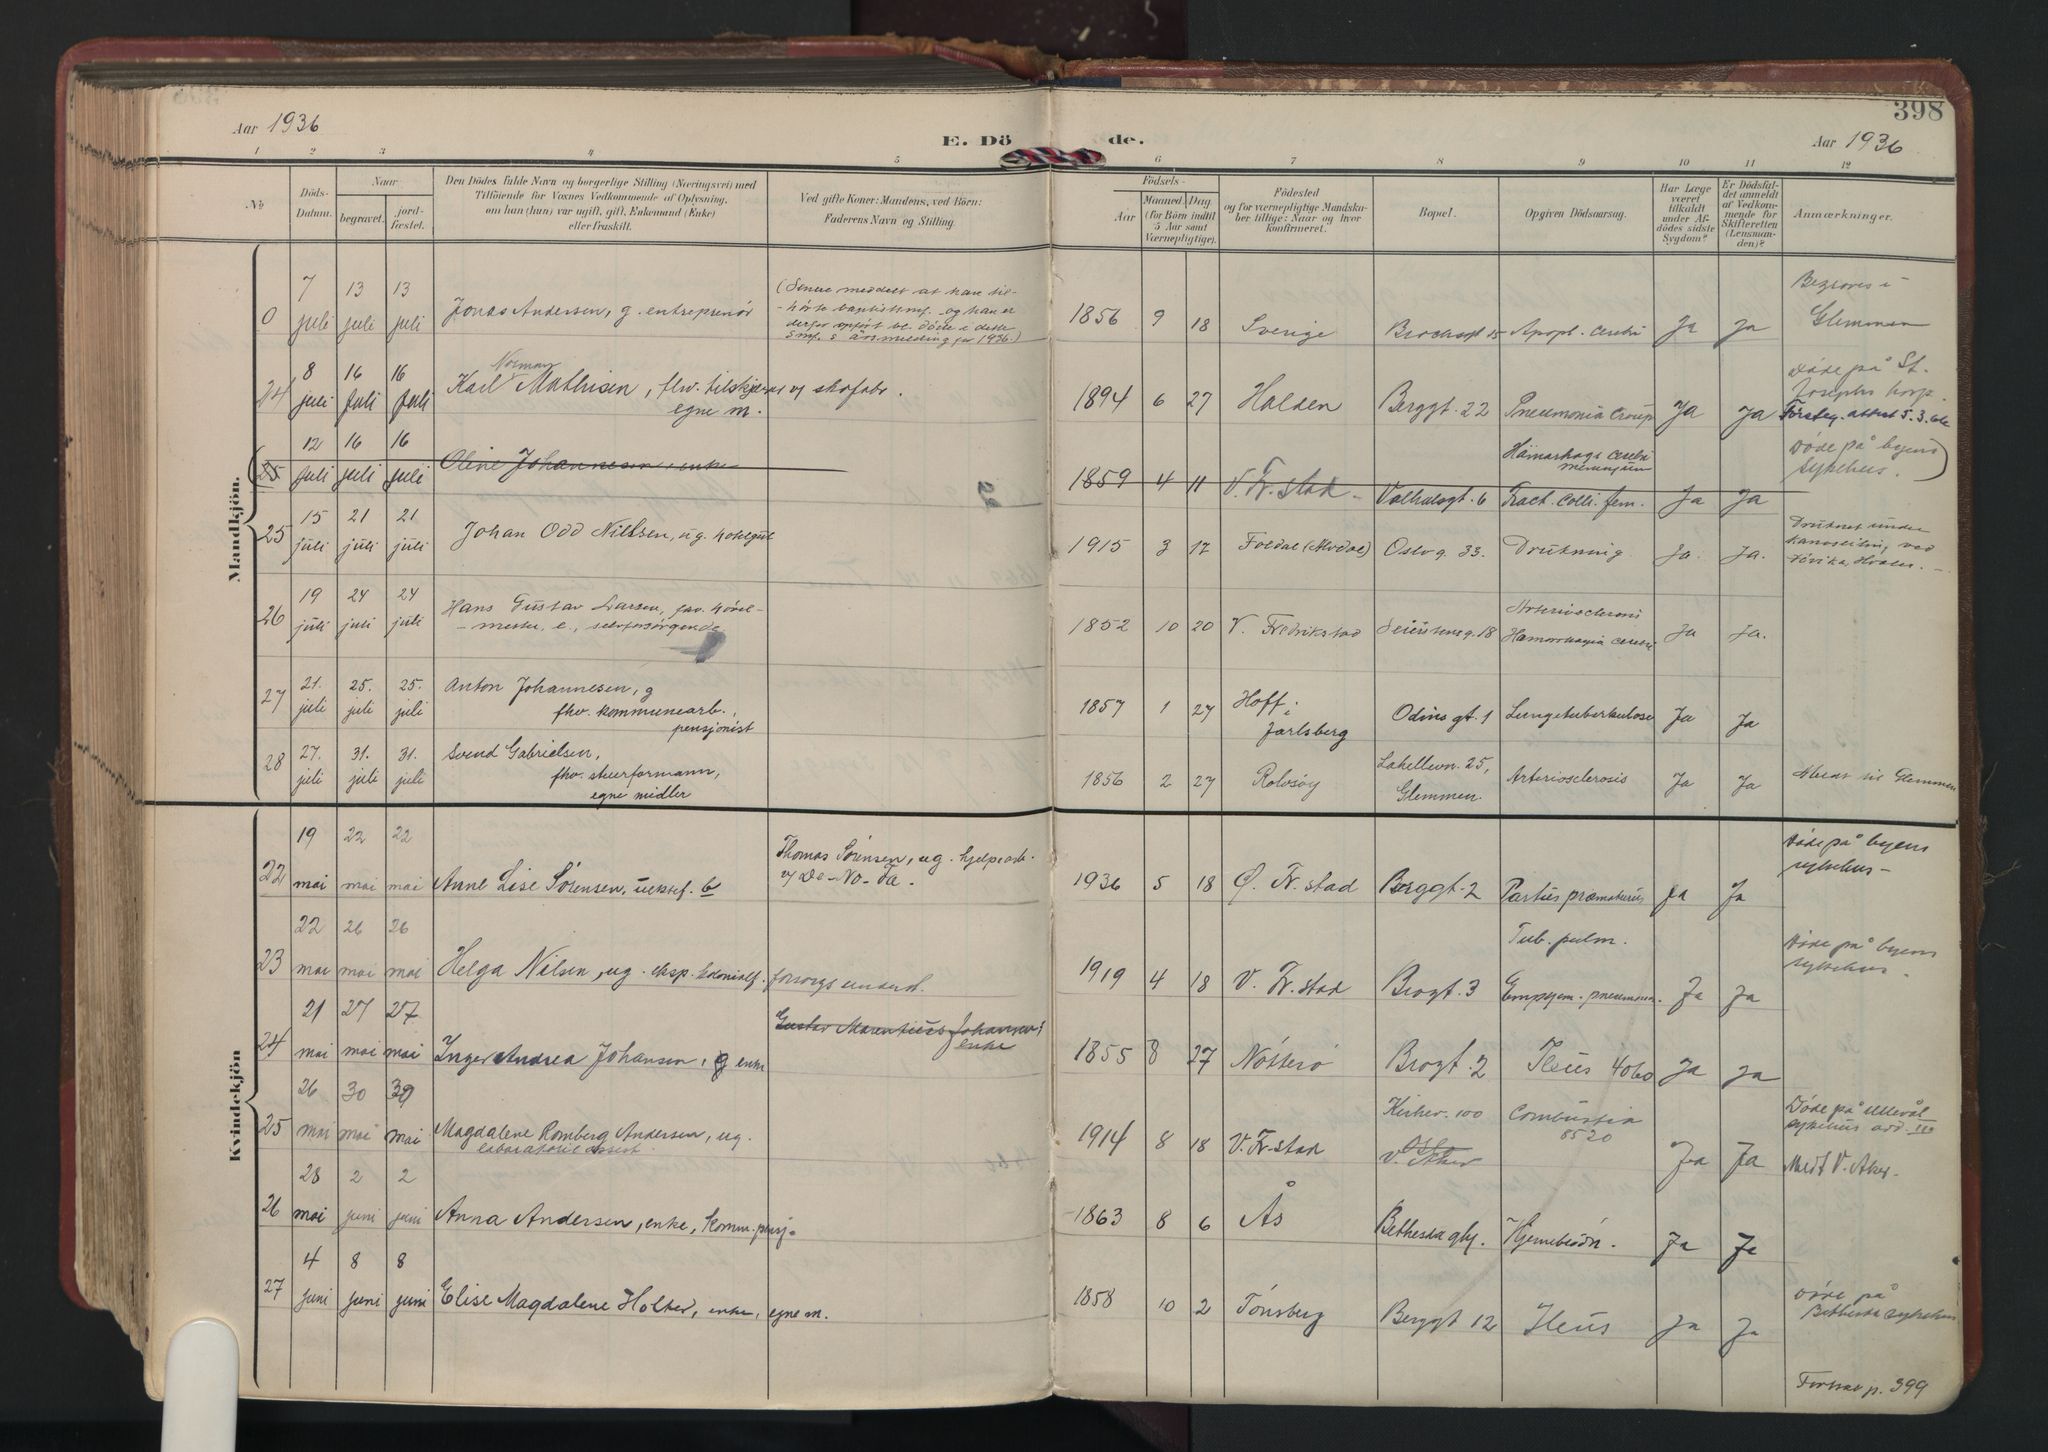 398
Aar 1936
E. Dö
de.
Aar 1936
1 2 3 4 5 6 7 8 9 10 11 12
No
Döds-
Datum.
Naar
begravet.
jord-
fæstet.
Den Dödes fulde Navn og borgerlige Stilling (Næringsvei) med
Tilföiende for Voxnes Vedkommende af Oplysning,
om han (hun) var ugift, gift, Enkemand (Enke)
eller fraskilt.
Ved gifte Koner: Mandens, ved Börn:
Faderens Navn og Stilling.
Födsels-
Aar
Maaned. Dag.
(for Börn indtil
5 Aar samt
Værnepligtige).
Födested
og for værnepligtige Mandsku-
ber tillige: Naar og hvor
konfirmeret.
Bopæl.
Opgiven Dödsaarsag.
Har Læge
været
tilkaldt
under Af-
dödes sidste
Sygdom?
Er Dödsfal-
det anmeldt
af Vedkom-
mende for
Skifteretten
(Lensman-
den)?
Anmærkninger.
Mandkjön.
0 7 juli 13 juli 13 juli Jonas Andersen, g. entreprenör
(Senere meddelt at han til-
hörte baptistsmf. og han er
derfor opfört bl. döde i dette
smf. s årsmelding for 1936.)
1856 9 18 Sverige Apopl. cerebri Ja Ja
Begraves i
Glemmen
24 8 juli 16 juli 16 juli Karl Norman Mathisen, fhv. tilskjærer v/ skofabr.
egne m.
1894 6 27 Halden Berggt. 22 Pneumonia croup Ja Ja
Döde på St.
Josephs hosp.
25 12 juli 16 juli 16 juli Oline Johannesen, enke
1859 4 11 V. Fr.stad Valhalsgt. 6
Fract. colli. fem. Ja Ja
Döde på byens
sykehus.
25 15 juli 21 juli 21 juli Johan Odd Nilssen, ug.
1915 3 17 Foldal (Alvdal) Oslo g. 33. Drukning Ja. Ja.
Druknet under
kanoseiling ved
26 19 juli 24 juli 24 juli Hans Gustav Larsen, fhv. hövel-
mester, e., selvforsörgende
1852 10 20 V. Fredrikstad
Arteriosclerosis
Hæmorrhagia cerebri Ja Ja.
27 21. juli 25. juli 25. juli Anton Johannesen, g
fhv. kommunearb.,
pensjonist
1857 1 27 Hoff i
Jarlsberg
Odins gt. 1 Lungetuberkulose Ja Ja
28 27. juli 31. juli 31. juli Svend Gabrielsen,
fhv. stuerformann,
egne midler
1856 2 27 Rolvsöy
Lahellevn. 25,
Glemmen
Arteriosclerosis Ja Ja
Meldt til Glemmen
Kvindekjön
22 19 mai 22 mai 22 mai Anne Lise Sörensen,
Thomas Sörensen, ug. hjelpearb.
v/ De-No-Fa.
1936 5 18 Ö. Fr.stad Berggt. 2 Partus præmaturus Ja Ja
Döde på byens
sykehus-
23 22 mai 26 mai 26 mai Helga Nilsen, ug. eksp. kolonialf. forsorgs underst.
1919 4 18 V. Fr.stad Brogt. 3
Tub. pulm.
Empyem. pneumonia. Ja Ja
Döde på byens
sykehus.
24 21 mai 27 mai 27 mai Inger Andrea Johansen, g enke
Gustav Marentius Johansen
enke
1855 8 27 Nötterö Brogt. 2 Ileus 4060 Ja Ja
25 26 mai 30 mai 30 mai Magdalene Romberg Andersen, ug.
laboratorieassist.
1914 8 18 V. Fr.stad
Kirkev. 100
Oslo
V. Aker
Combustia
8520 Ja Ja
Döde på Ullevål
sykehus avd. III
Meldt V. Aker-
26 28 mai 2 juni 2 juni Anna Andersen, enke, komm. pensj.
1863 8 6 Ås Bethesda glhj. Hjerneblödn. Ja Ja
27 4 juni 8 juni 8 juni Elise Magdalene Holter, enke, egne m.
1858 10 2 Tönsberg Berggt 12 Ileus Ja Ja
Döde på
Bethesda sykehus
Forts. p. 399